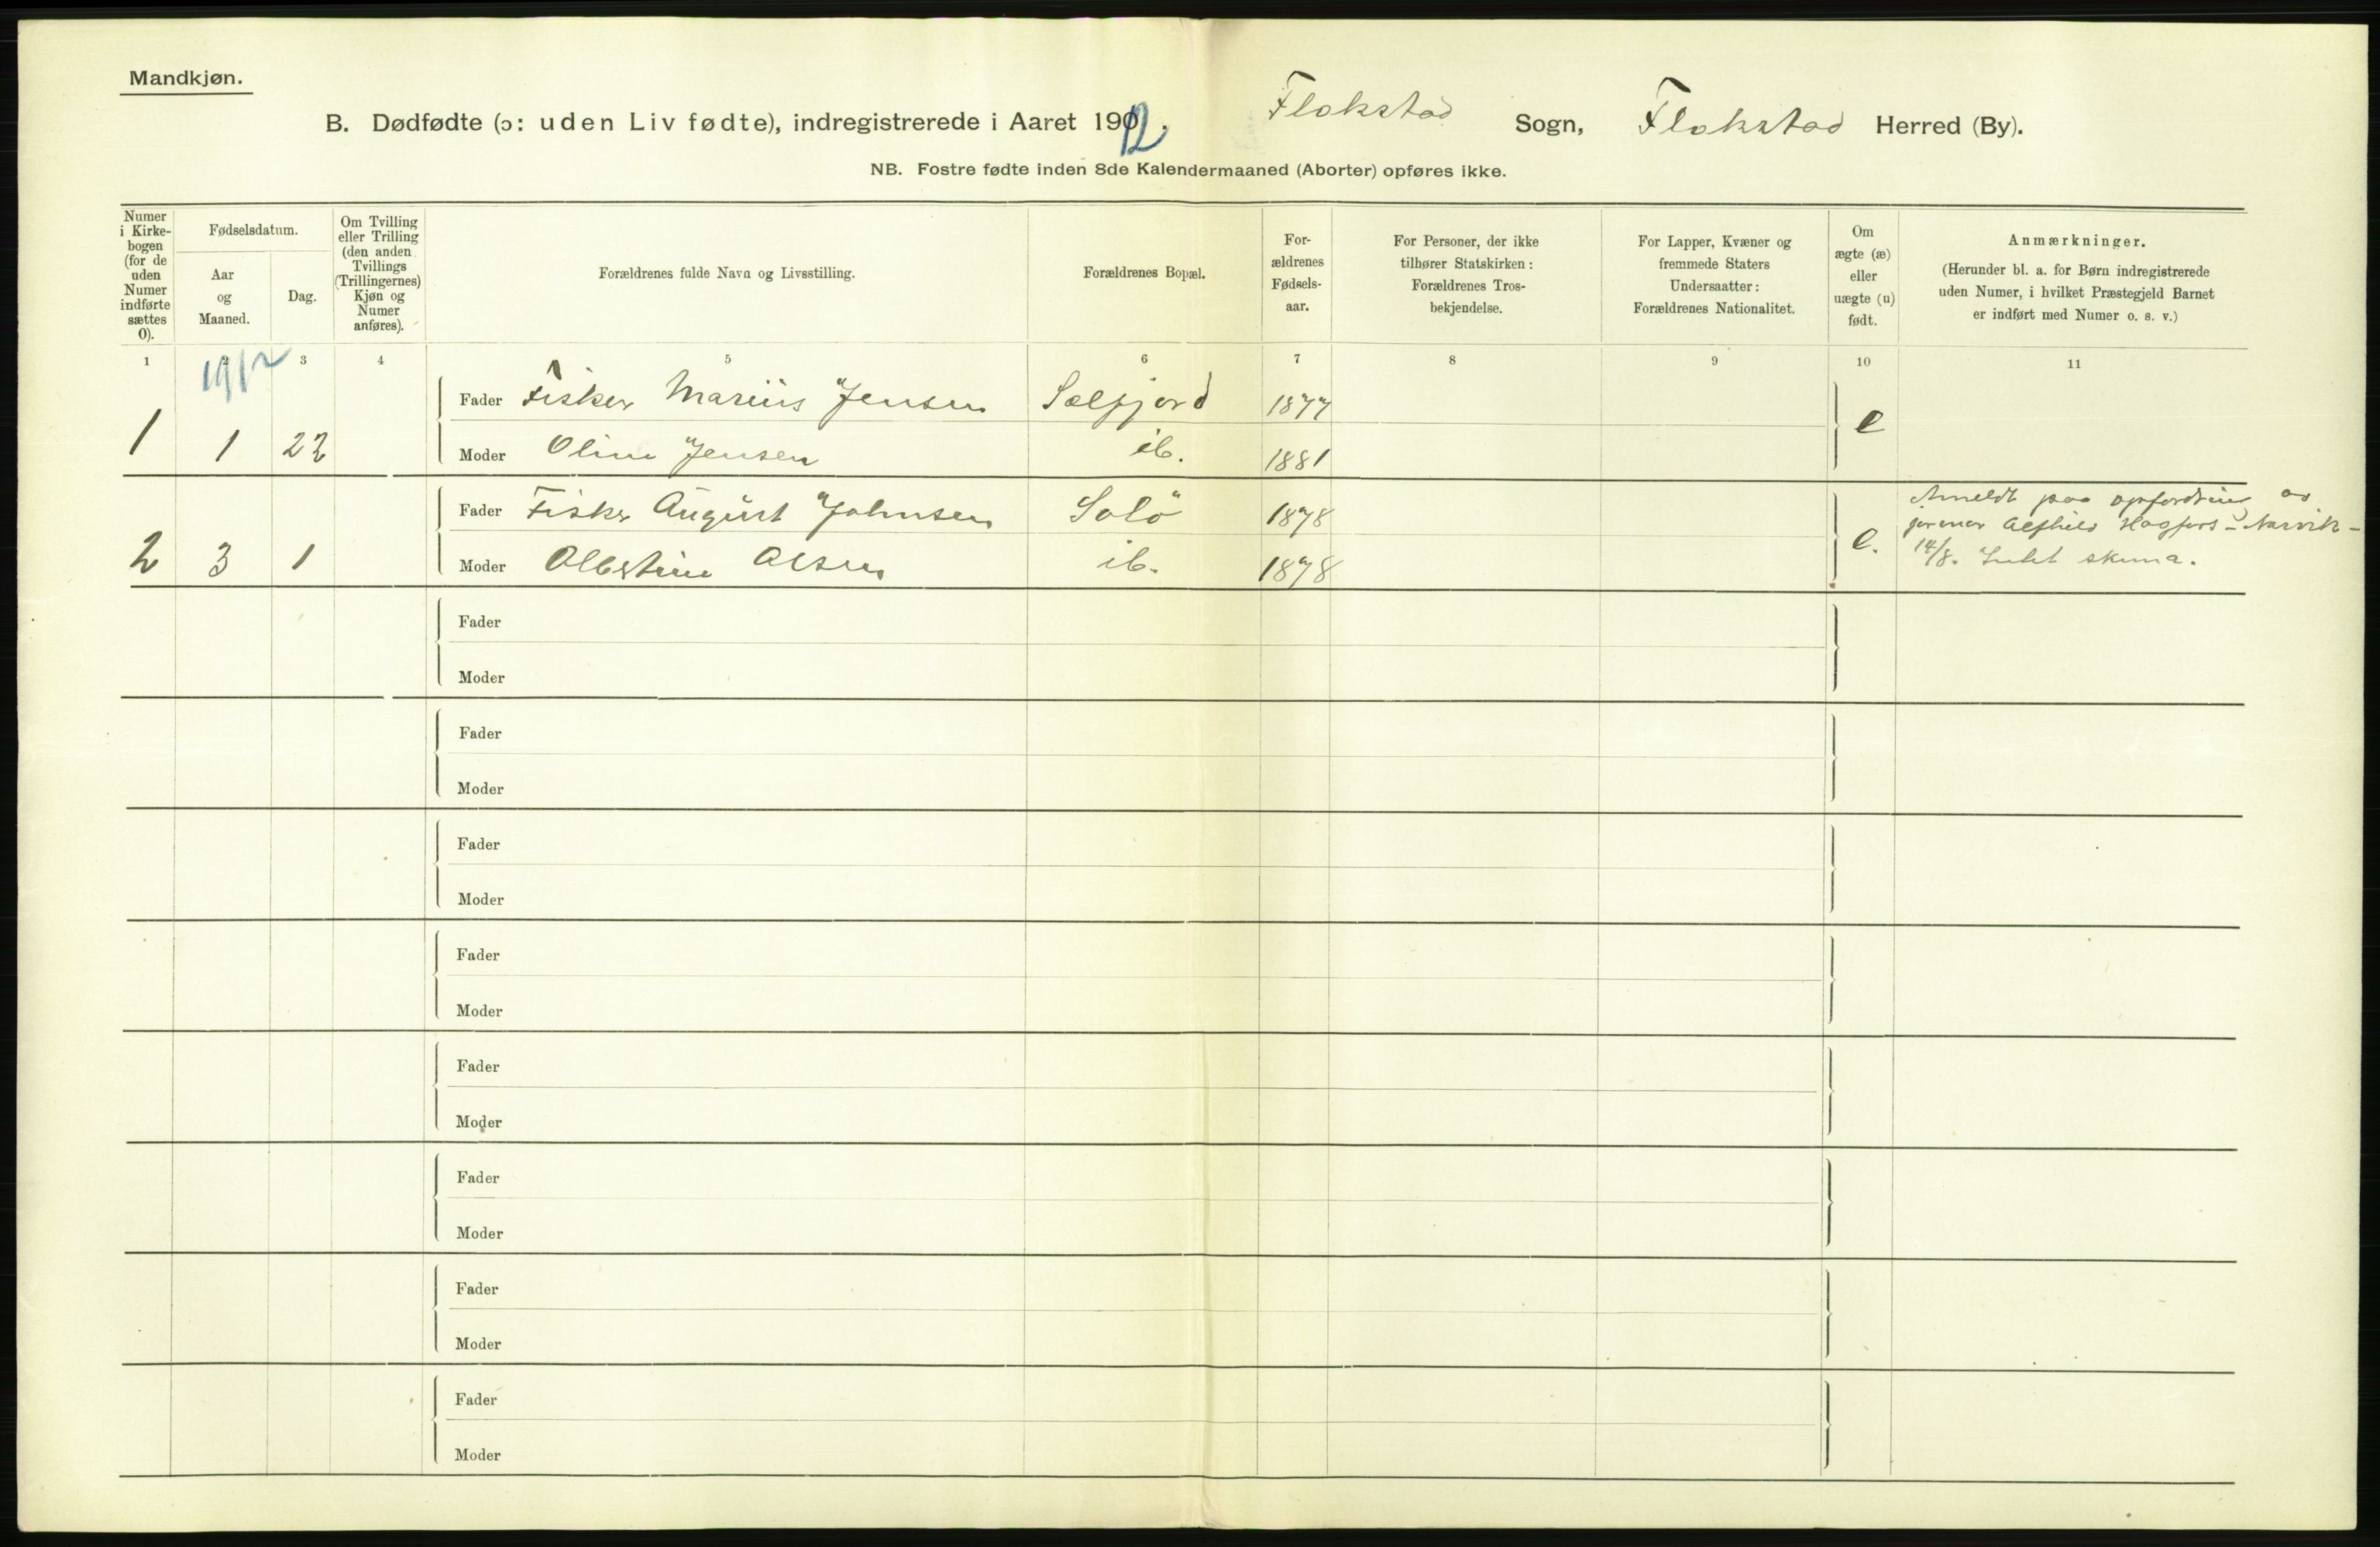 Mandkjøn.
B. Dødfødte (ɔ: uden Liv fødte), indregistrerede i Aaret 1912. Flakstad Sogn, Flakstad Herred (By).
NB. Fostre fødte inden 8de Kalendermaaned (Aborter) opføres ikke.
Numer
i Kirke-
bogen
(for de
uden
Numer
indførte
sættes
0).
Fødselsdatum.
Aar
og
Maaned.
Dag.
Om Tvilling
eller Trilling
(den anden
Tvillings
(Trillingernes)
Kjøn og
Numer
anføres).
Forældrenes fulde Navn og Livsstilling.
Forældrenes Bopæl.
For-
ældrenes
Fødsels-
aar.
For Personer, der ikke
tilhører Statskirken:
Forældrenes Tros-
bekjendelse.
For Lapper, Kvæner og
fremmede Staters
Undersaatter:
Forældrenes Nationalitet.
Om
ægte (æ)
eller
uægte (u)
født.
Anmærkninger.
(Herunder bl. a. for Børn indregistrerede
uden Numer, i hvilket Præstegjeld Barnet
er indført med Numer o. s. v.)
1 2 3 4 5 6 7 8 9 10 11
1912
Fader Fisker Marius Jensen Selfjord 1877
1 1 22 Moder Oline Jensen ib. 1881 e
Fader Fisker August Johnsen Solö 1878
2 3 1 Moder Albertine Olsen ib. 1878 e.
Anmeldt paa opfordring av
jormor Alfhild Hagfors - Narvik -
14/8. Intet skema.
Fader
Moder
Fader
Moder
Fader
Moder
Fader
Moder
Fader
Moder
Fader
Moder
Fader
Moder
Fader
Moder